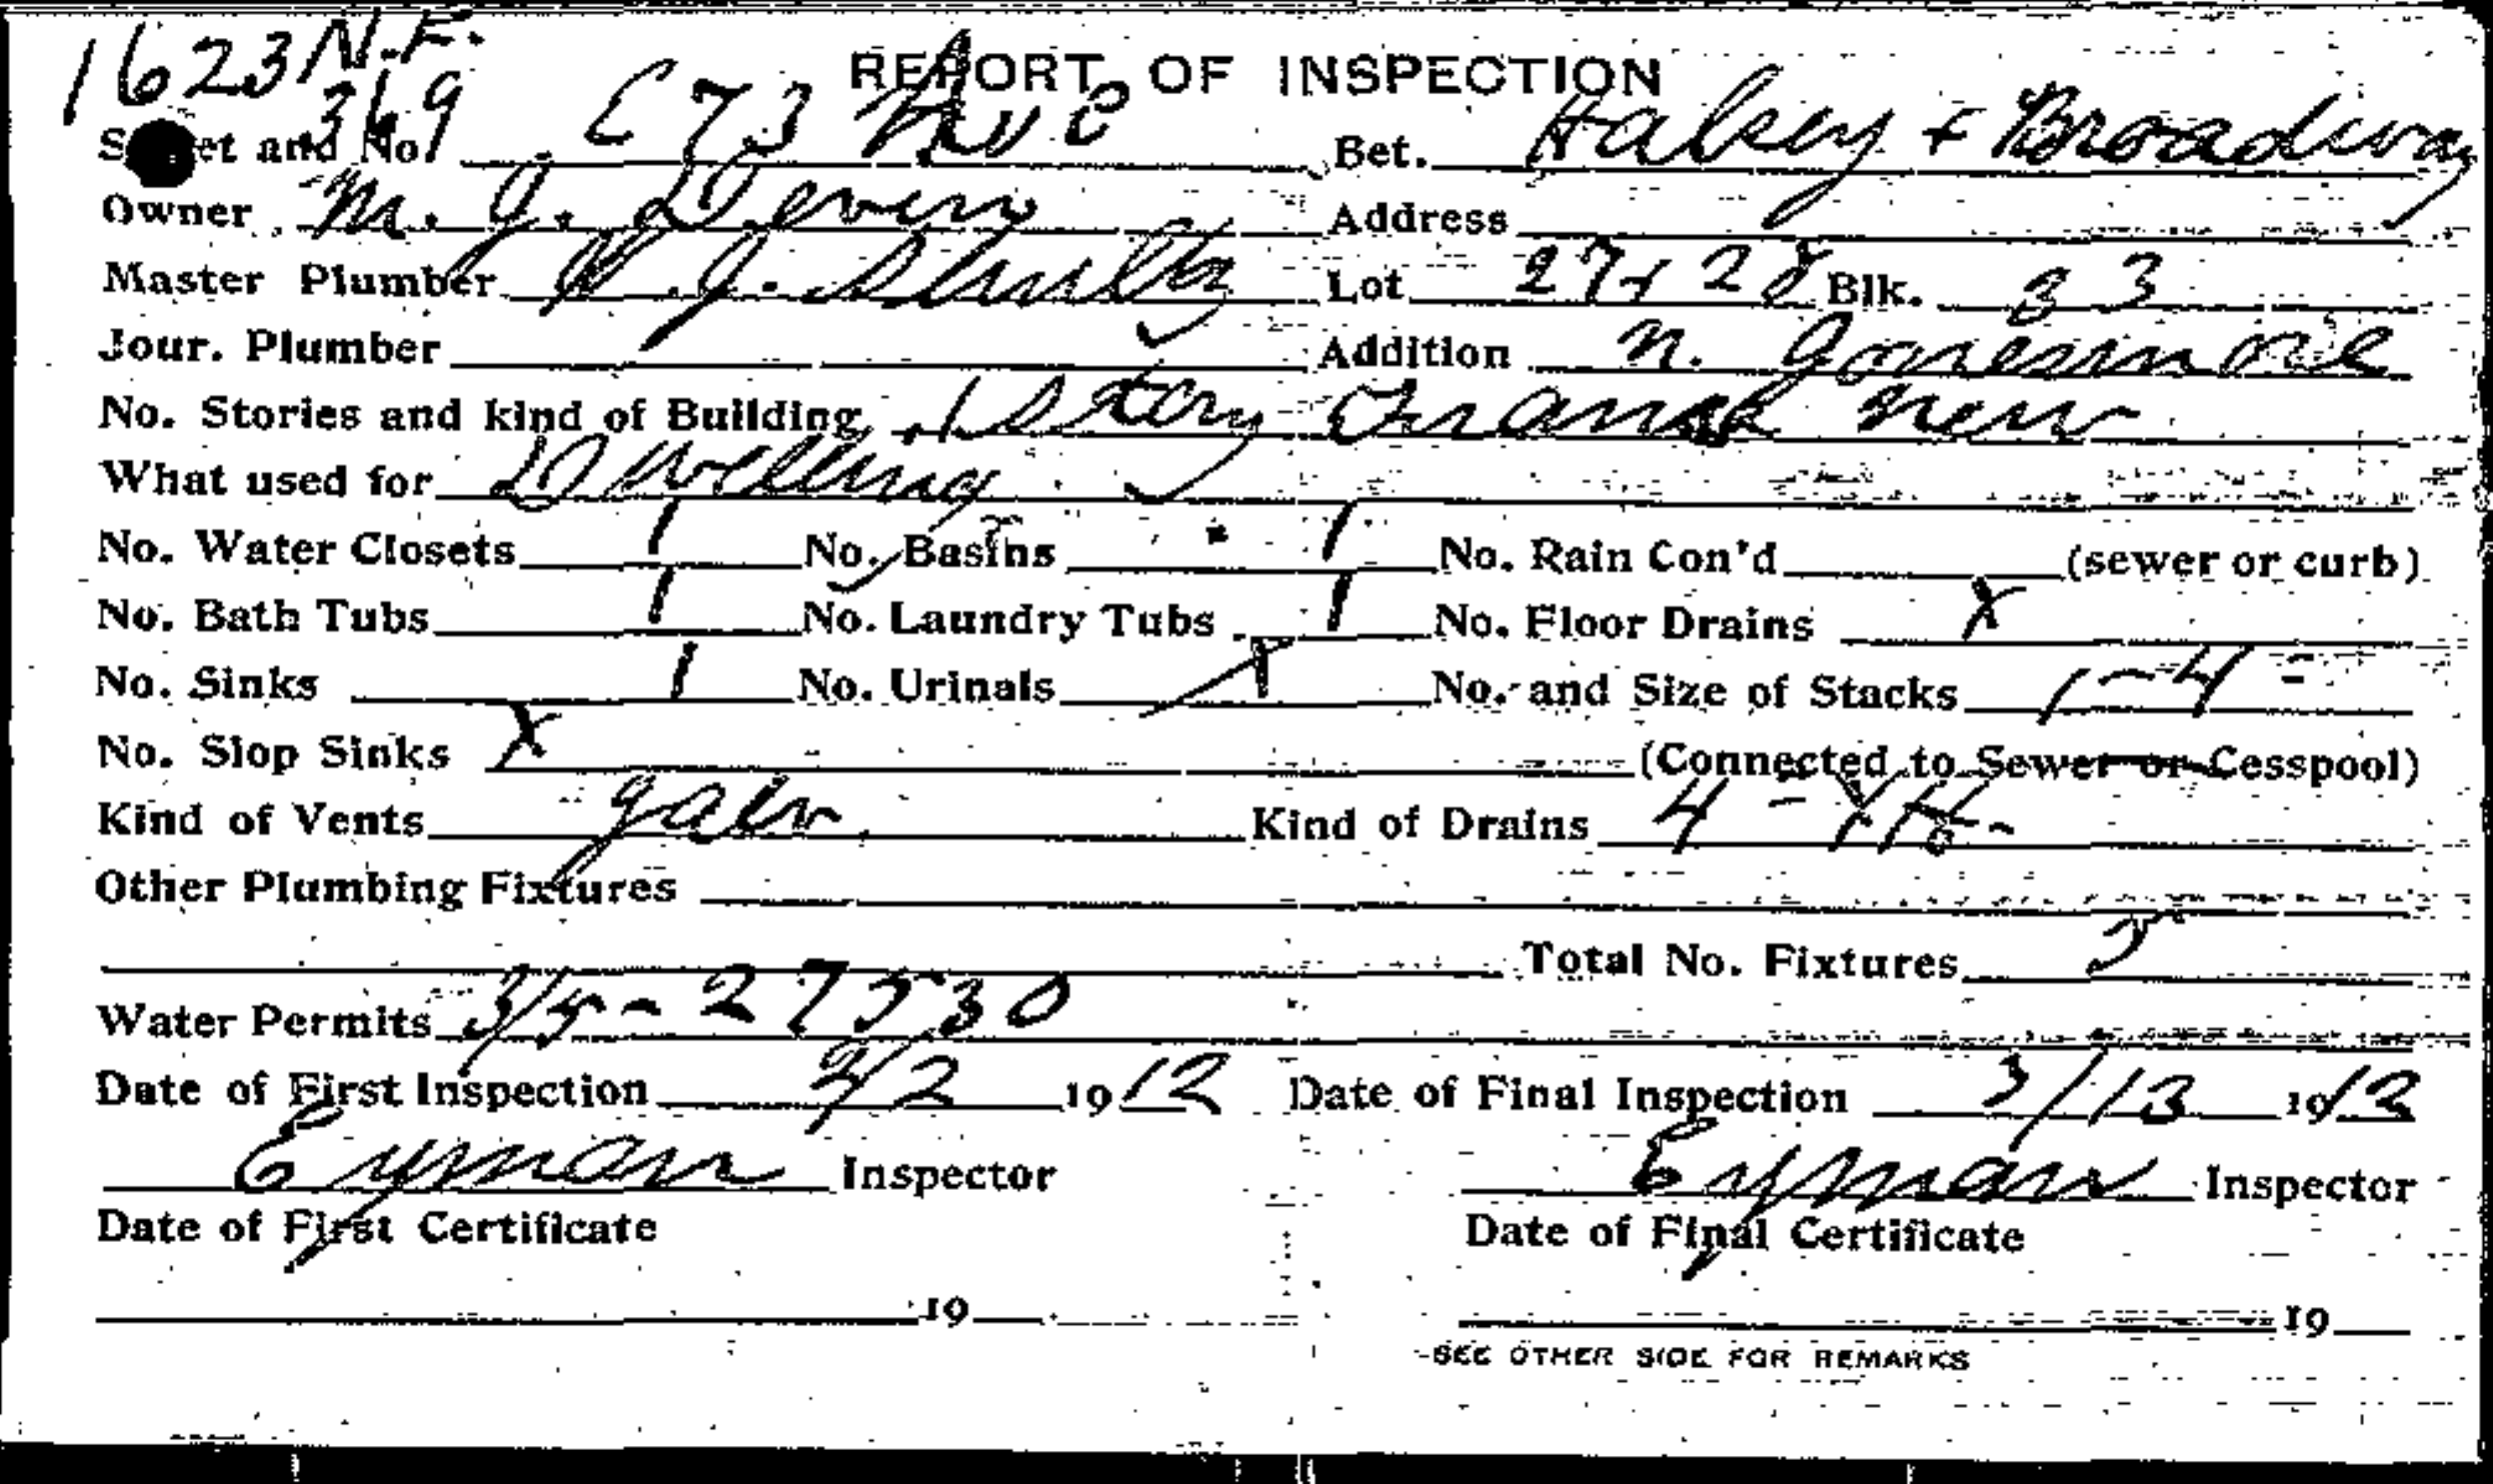 1623 N.E.
REPORT OF INSPECTION
Street and No. 369 E 73 Ave Bet. Halsey + Broadway
Owner M. J. Devin Address
Master Plumber W. J. Shultz Lot 27 + 28 Blk. 33
Jour. Plumber Addition N.
No. Stories and kind of Building 1 Story Frame New
What used for Dwelling
No. Water Closets 1 No. Basins 1 No. Rain Con'd (sewer or curb)
No. Bath Tubs 1 No. Laundry Tubs 1 No. Floor Drains X
No. Sinks 1 No. Urinals No. and Size of Stacks 1-4"
No. Slop Sinks X (Connected to Sewer or Cesspool)
Kind of Vents galv. Kind of Drains 4 -
Other Plumbing Fixtures
Total No. Fixtures 5
Water Permits 3/5 - 27530
Date of First Inspection 3/2 1912 Date of Final Inspection 3/13 1912
Eyman Inspector Eyman Inspector
Date of First Certificate Date of Final Certificate
19 19
SEE OTHER SIDE FOR REMARKS